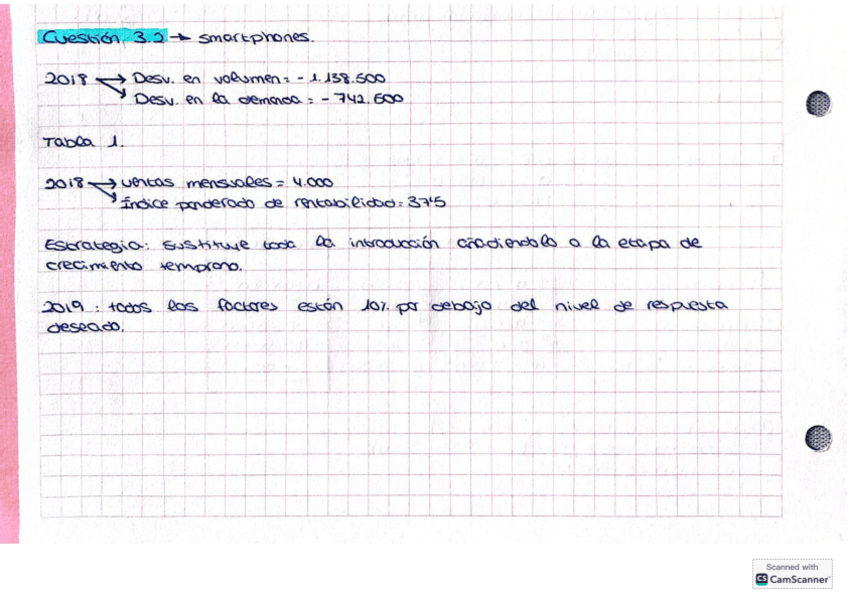 Cuestión 3.2 → smartphones.
2018 → Desv. en volumen = - 1.138.500
→ Desv. en la demanda = - 742.500
Tabla 1.
2018 → ventas mensuales = 4.000
→ Índice ponderado de rentabilidad: 37'5
Estrategia: sustituye toda la introducción añadiendola a la etapa de
crecimiento temprano.
2019 : todos los factores están 10% por debajo del nivel de respuesta
deseado.
Scanned with
CS CamScanner